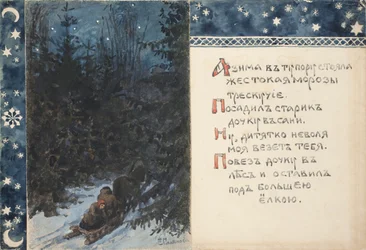 А зима въ ту пору стояла
жестокая морозы
трескучіе.
Посадилъ старикъ
дочку въ сани.
Ну, дитятко неволя
моя везетъ тебя.
Повезъ дочку въ
лѣсъ и оставилъ
подъ большею
ёлкою.